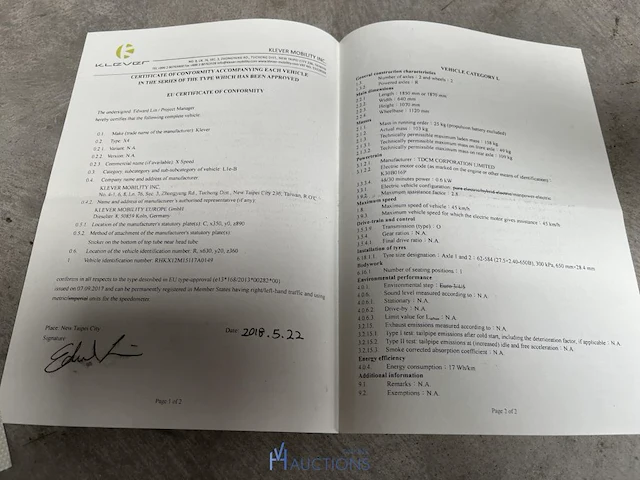 KLEVER
KLEVER MOBILITY INC.
CERTIFICATE OF CONFORMITY ACCOMPANYING EACH VEHICLE
IN THE SERIES OF THE TYPE WHICH HAS BEEN APPROVED
EU CERTIFICATE OF CONFORMITY
The undersigned: Edward Lin / Project Manager
hereby certifies that the following complete vehicle:
0.1. Make (trade name of the manufacturer): Klever
0.2. Type: X4
0.2.1. Variant: N.A.
0.2.2. Version: N.A.
0.2.3. Commercial name (if available): X Speed
0.3. Category, subcategory and sub-subcategory of vehicle: L1e-B
0.4. Company name and address of manufacturer:
KLEVER MOBILITY INC.
No. 4-1, 6, 8, Ln. 76, Sec. 3, Zhongyang Rd., Tucheng Dist., New Taipei City 236, Taiwan, R.O.C.
0.4.2. Name and address of manufacturer's authorised representative (if any):
KLEVER MOBILITY EUROPE GmbH
Dieselstr. 8, 50859 Koln, Germany
0.5.1. Location of the manufacturer's statutory plate(s): C, x350, y0, z890
0.5.2. Method of attachment of the manufacturer's statutory plate(s):
Sticker on the bottom top tube near head tube.
0.6. Location of the vehicle identification number: R, x630, y20, z360
1. Vehicle identification number:
conforms in all respects to the type described in EU type-approval (e13*168/2013*00282*00)
issued on 07.09.2017 and can be permanently registered in Member States having right/left-hand traffic and using
metric/imperial units for the speedometer.
Place: New Taipei City
Date: 2018.5.22
Signature:
Page 1 of 2
VEHICLE CATEGORY L
General construction characteristics
Number of axles: 2 and wheels: 2
Powered axles: R
Main dimensions
Length: 1850 mm or 1870 mm
Width: 640 mm
Height: 1070 mm
Wheelbase: 1120 mm
Masses
Mass in running order: 25 kg (propulsion battery excluded)
Actual mass:
Technically permissible maximum laden mass: 158 kg
Technically permissible maximum mass on front axle:
Technically permissible maximum mass on rear axle:
Powertrain
Manufacturer: TDCM CORPORATION LIMITED
Electric motor code (as marked on the engine or other means of identification):
15/30 minutes power: 0.6 kW
Electric vehicle configuration: pure electric
Maximum assistance factor:
Maximum speed
Maximum speed of vehicle: 45 km/h
Maximum vehicle speed for which the electric motor gives assistance: 45 km/h
Drive-train and control
Transmission (type): O
Gear ratios: N.A.
Final drive ratio: N.A.
Installation of tyres
Tyre size designation: Axle 1 and 2: 62-584 (27.5×2.40-650B), 300 kPa, 650 mm×28.4 mm
Bodywork
6.16.1. Number of seating positions: 1
Environmental performance
4.0.1. Environmental step:
4.0.6. Sound level measured according to: N.A.
4.0.6.1. Stationary: N.A.
4.0.6.2. Drive-by: N.A.
4.0.6.3. Limit value for: N.A.
3.2.15. Exhaust emissions measured according to: N.A.
3.2.15.1. Type I test: tailpipe emissions after cold start, including the deterioration factor, if applicable: N.A.
3.2.15.2. Type II test: tailpipe emissions at (increased) idle and free acceleration: N.A.
3.2.15.3. Smoke corrected absorption coefficient: N.A.
Energy efficiency
4.0.4. Energy consumption: 17 Wh/km
Additional information
9.1. Remarks: N.A.
9.2. Exemptions: N.A.
Page 2 of 2
AUCTIONS